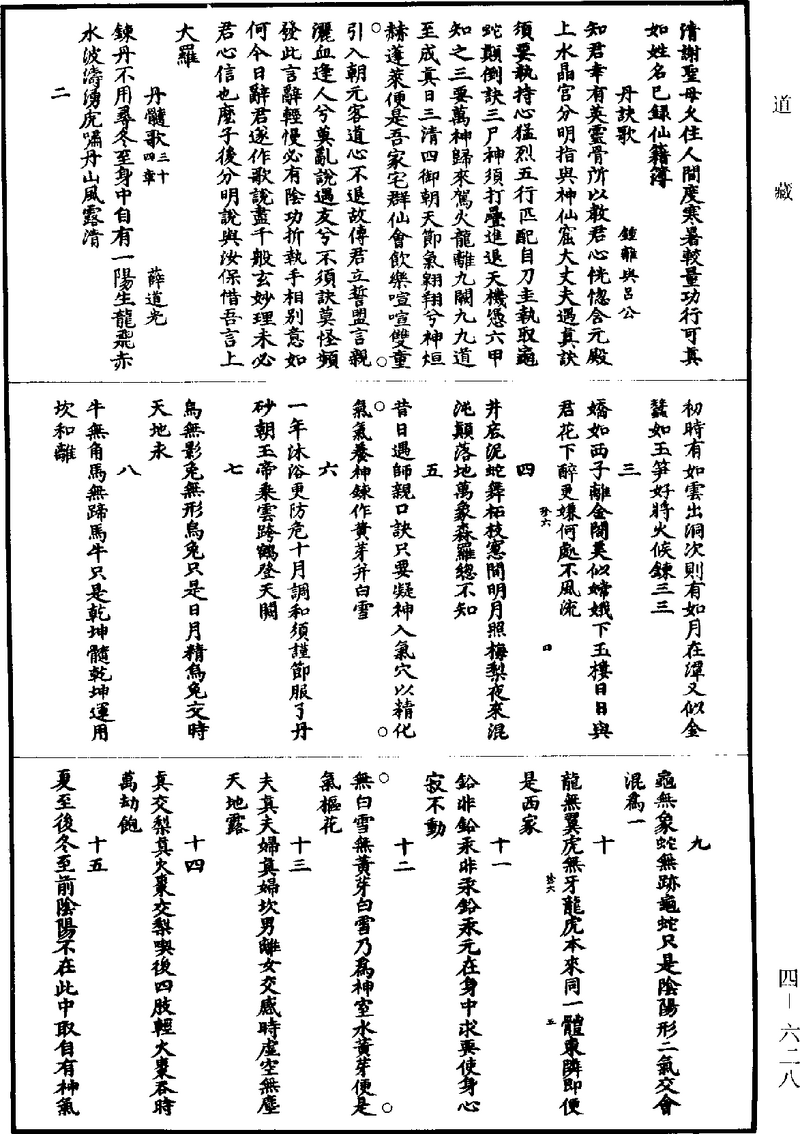 道藏
清謝聖母久住人間度寒暑較量功行可真
如姓名已録仙籍簿
丹訣歌 鍾離與呂公
知君幸有英靈骨所以敎君心恍惚含元殿
上水晶宫分明指與神仙窟大丈夫遇真訣
須要執持心猛烈五行匹配自刀圭執取龜
蛇顛倒訣三尸神須打疊進退天機憑六甲
知之三要萬神歸來駕火龍離九闕九九道
至成真日三清四御朝天節氣翱翔兮神烜
赫蓬萊便是吾家宅群仙會飲樂喧喧雙童
引入朝元客道心不退故傳君立誓盟言親
灑血逢人兮莫亂說遇友兮不須訣莫怪頻
發此言辭輕慢必有陰功折執手相别意如
何今日辭君遂作歌說盡千般玄妙理未必
君心信也麽子後分明說與汝保惜吾言上
大羅
丹髓歌三十四章 薛道光
鍊丹不用尋冬至身中自有一陽生龍飛赤
水波濤湧虎嘯丹山風露清
二
初時有如雲出洞次則有如月在潭又似金
蠶如玉笋好將火候鍊三三
三
嬌如西子離金闕美似嫦娥下玉樓日日與
君花下醉更嫌何處不風流
四
珍六
四
井底泥蛇舞柘枝窓間明月照梅梨夜來混
沌顛落地萬象森羅緫不知
五
昔日遇師親口訣只要凝神入氣穴以精化
氣氣養神鍊作黄芽并白雪
六
一年沐浴更防危十月調和須謹節服了丹
砂朝玉帝乘雲跨鶴登天闕
七
烏無影兔無形烏兔只是日月精烏兔交時
天地永
八
牛無角馬無蹄馬牛只是乾坤髓乾坤運用
坎和離
九
龜無象蛇無跡龜蛇只是陰陽形二氣交會
混爲一
十
龍無翼虎無牙龍虎本來同一體東隣即便
是西家
珍六
五
十一
鉛非鉛汞非汞鉛汞元在身中求要使身心
寂不動
十二
無白雪無黄芽白雪乃爲神室水黄芽便是
氣樞花
十三
夫真夫婦真婦坎男離女交感時虚空無塵
天地露
十四
真交梨真火棗交梨喫後四肢輕火棗吞時
萬劫飽
十五
夏至後冬至前陰陽不在此中取自有神氣
四－六二八